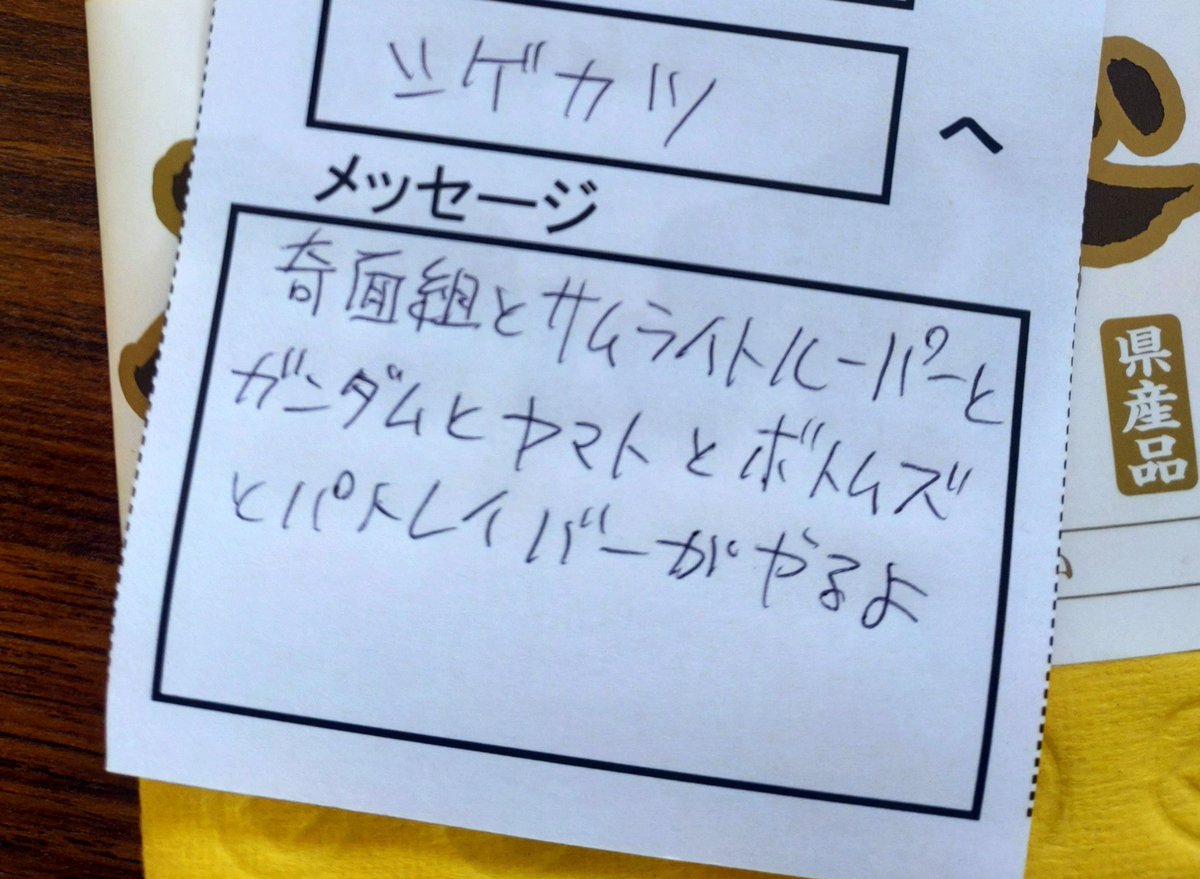 ツゲカツ
へ
メッセージ
奇面組とサムライトルーパーと
ガンダムとヤマトとボトムズ
とパトレイバーがやるよ
県産品